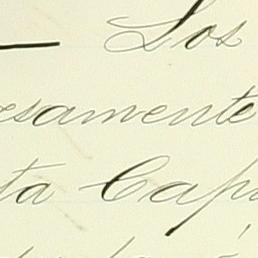 — Los
esamente
ta Capi